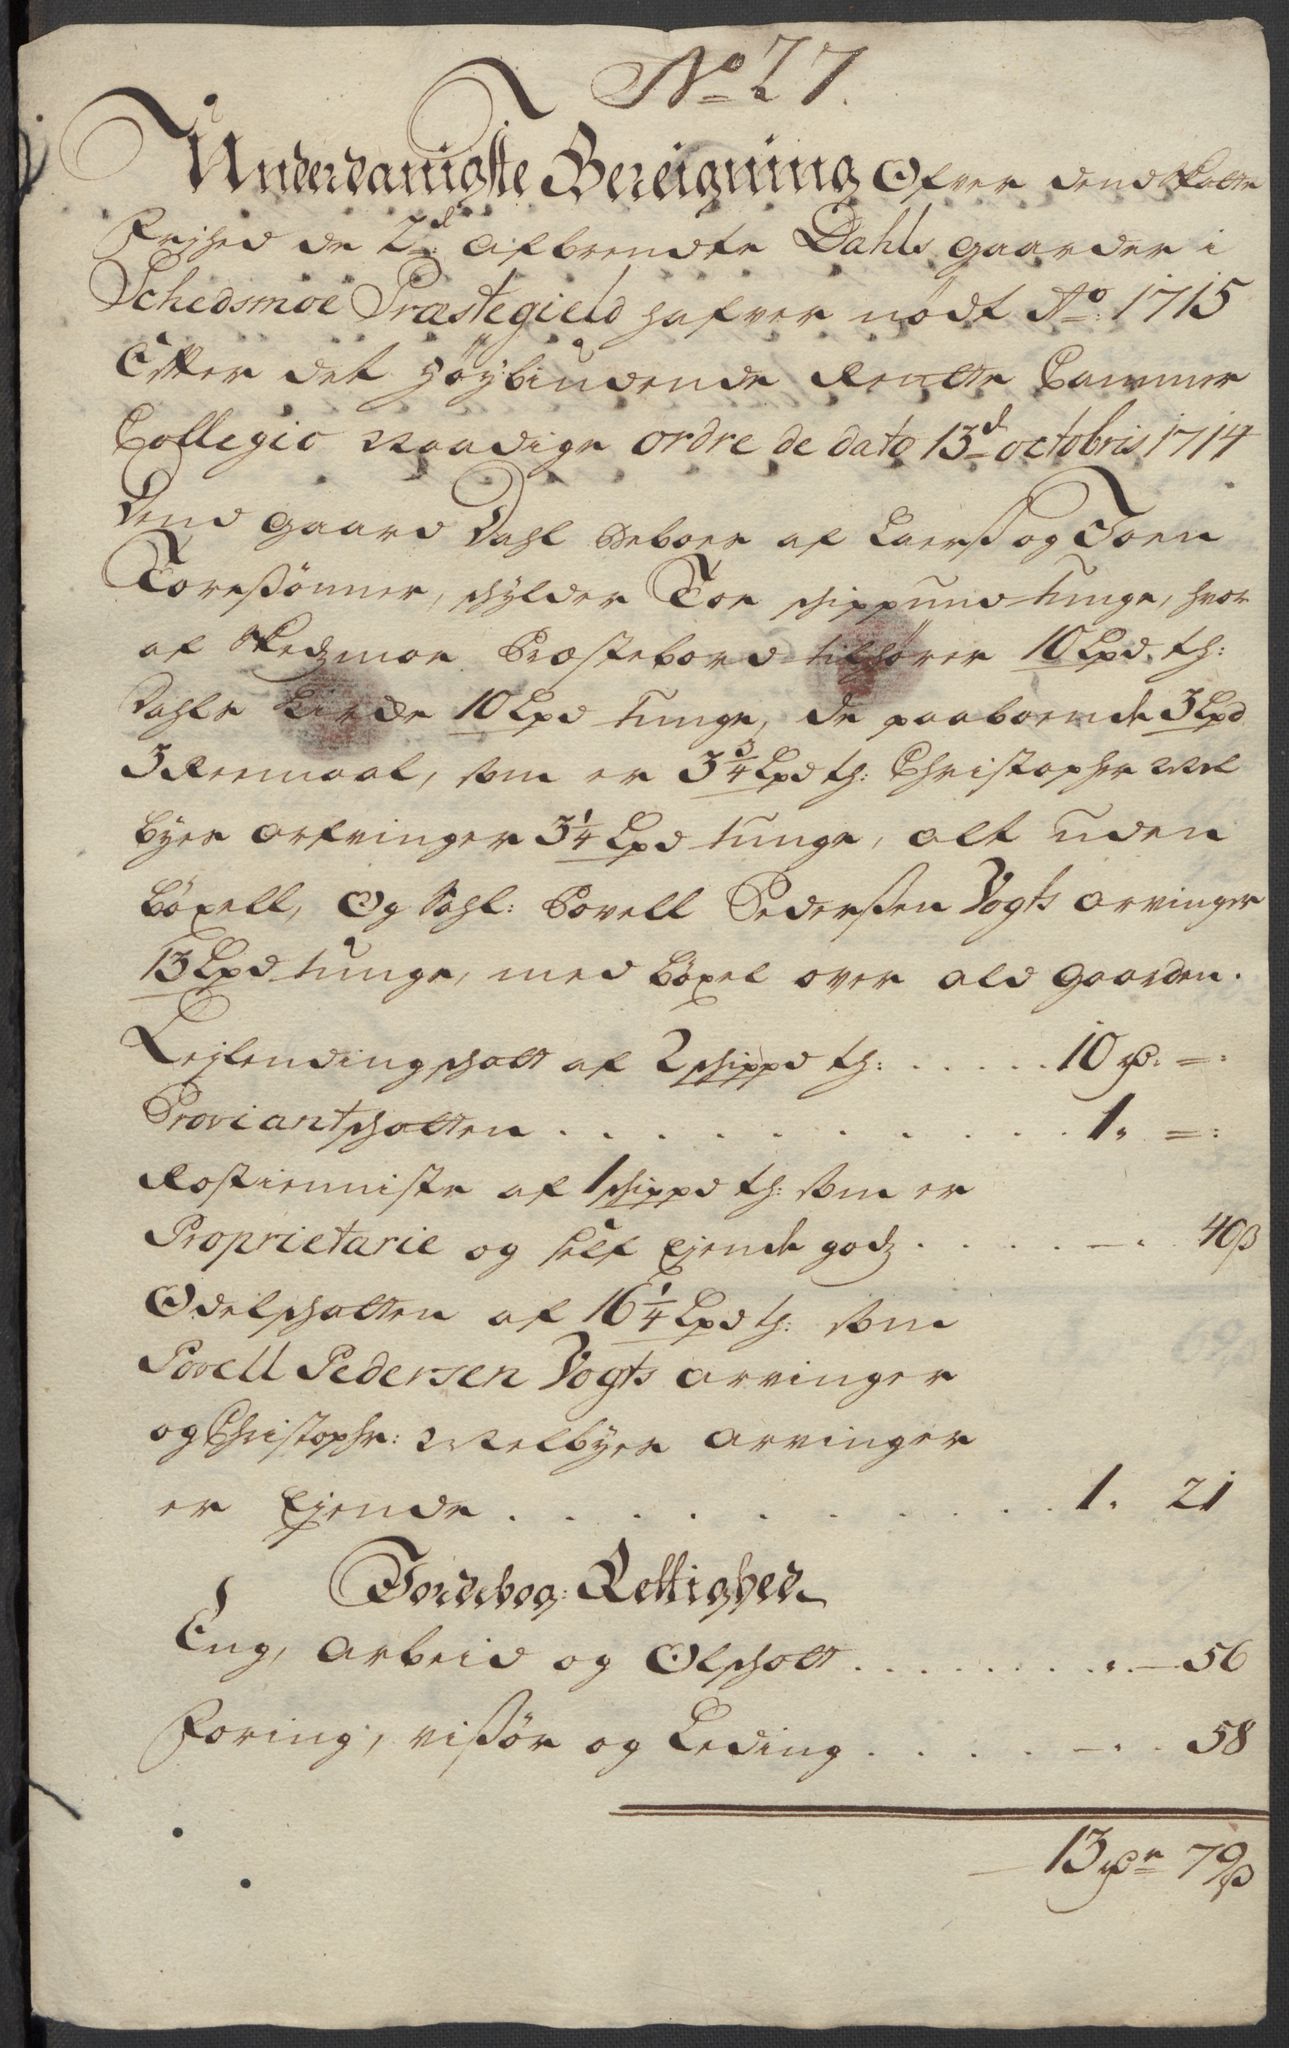 No 77.
Underdanigste Bereigning Ofver dend Skatte
Frihed de 2d: afbrendte Dahls gaarder i
Schedsmoe Præstegield hafver nödt Ao: 1715
Efter det höybiudende Rentte Cammer
Collegio Naadige ordre de dato 13d octobris 1714
Dend gaard Dahl beboer af Lars og Toen
Torersönner, skylder Toe schippund tunge, hvor
af Skedzmoe Præstebord tilhörer 10 Lpd th:
Dahls Kircke 10 Lpd tunge, de paaboende 3 Lpd
3 Remaal, som er 3¾ Lpd th: Christopher Mel
byes arfvinger 3¼ Lpd tunge, alt uden
böxell, Og Sahl: Povell Pederssen Vogts arvinger
13 Lpd tunge, med böxel over ald gaarden.
Leylendingschatt af 2 schippd th: . . . . . 10 rd: =:
Proviantschatten . . . . . . . . . . . 1. =:
Rostienniste af 1 schippd th: som er
Proprietarie og self Ejende godz . . . . — . 40 ß
Odelschatten af 16¼ Lpd th: som
Povell Pedersen Vogts arvinger
og Christopher: Melbyes arvinger
er Ejende . . . . . . . . . . 1. 21
Jordebog: Rettighed
Eng, arbeid og Olschatt . . . . . . . . — 56
Foring, vissör og Leding . . . . — . . 58
13 rdr 79 ß